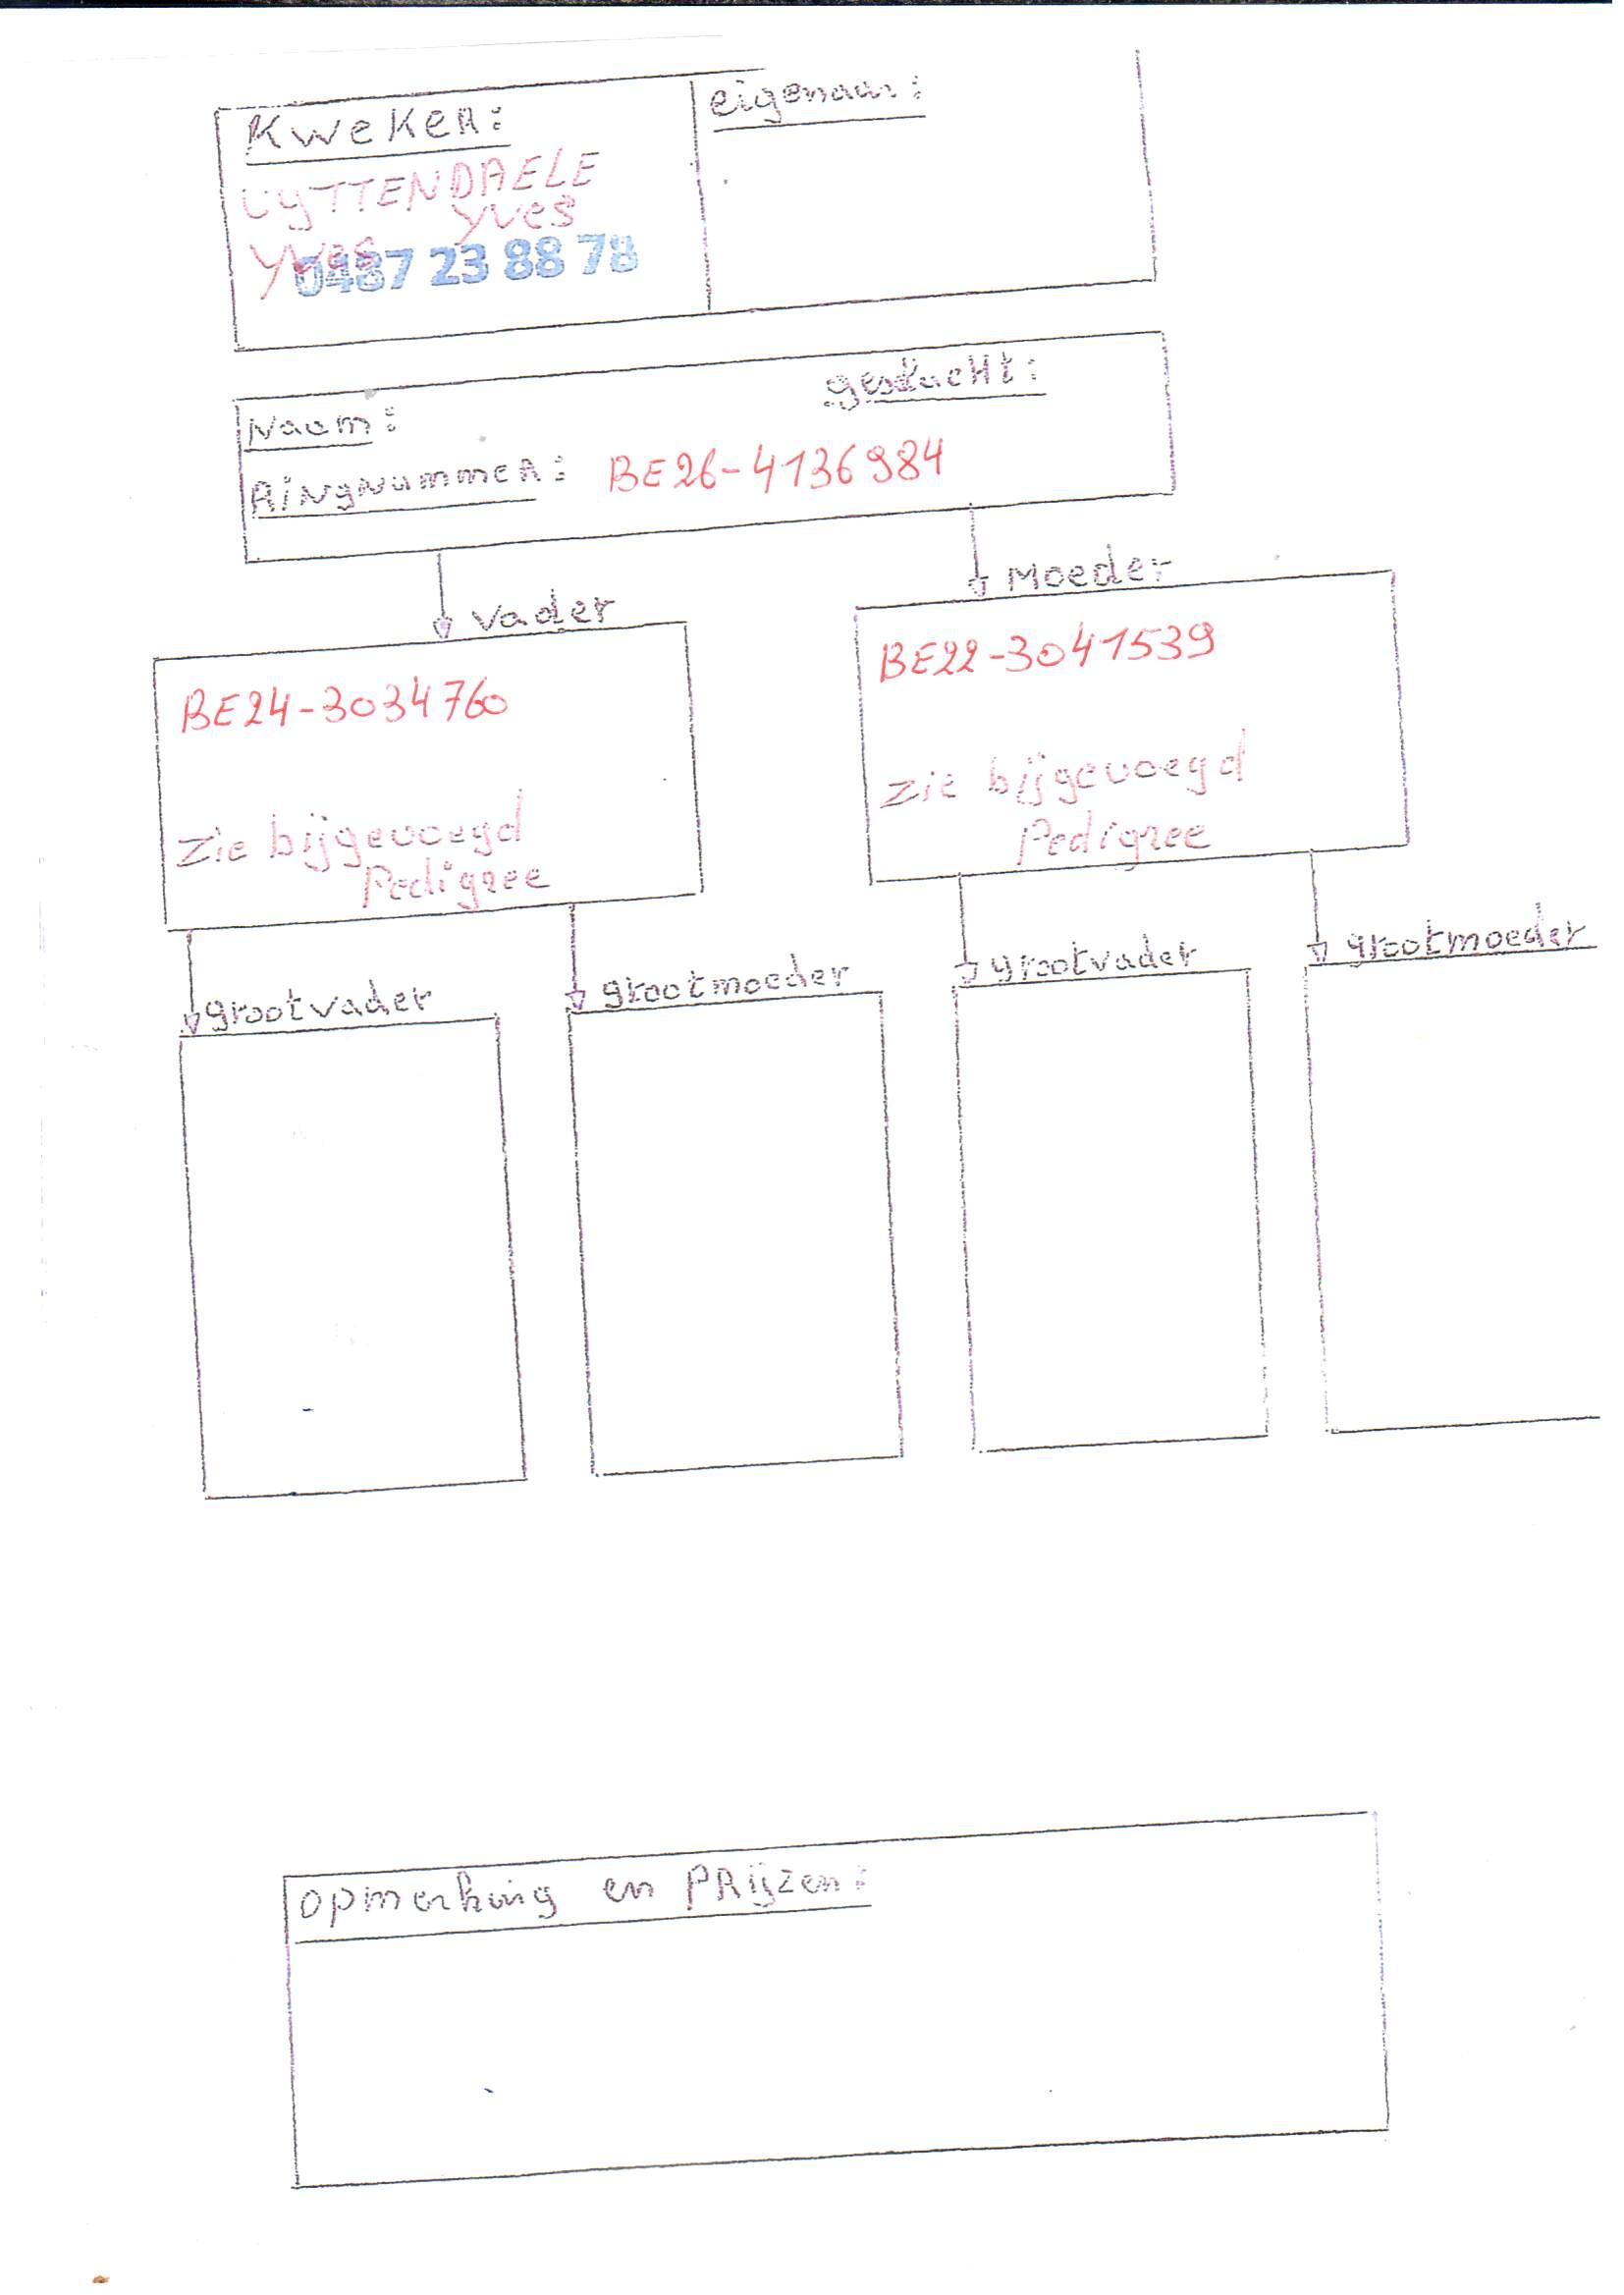 Kweker:
eigenaar:
UYTTENDAELE
Yves
Yves
0487 23 88 78
geslacht:
Naam:
Ringnummer: BE26-4136984
Moeder
Vader
BE22-3041539
BE24-3034760
Zie bijgevoegd
Pedigree
Zie bijgevoegd
Pedigree
grootvader
grootmoeder
grootvader
grootmoeder
opmerking en PRijzen: